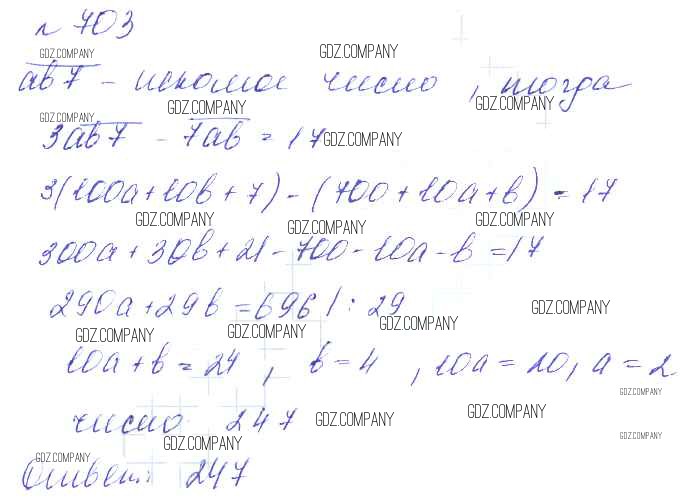 № 703
GDZ.COMPANY GDZ.COMPANY
ab7 - искомое число, тогда
GDZ.COMPANY GDZ.COMPANY GDZ.COMPANY
3ab7 - 7ab = 17 GDZ.COMPANY
3(100a+10b+7)-(700+10a+b)=17
GDZ.COMPANY GDZ.COMPANY GDZ.COMPANY
300a+30b+21-700-10a-b=17
290a+29b=696 | : 29 GDZ.COMPANY
GDZ.COMPANY GDZ.COMPANY GDZ.COMPANY
10a+b=24, b=4, 10a=20, a=2
GDZ.COMPANY
число 247 GDZ.COMPANY GDZ.COMPANY
GDZ.COMPANY GDZ.COMPANY
GDZ.COMPANY
Ответ: 247